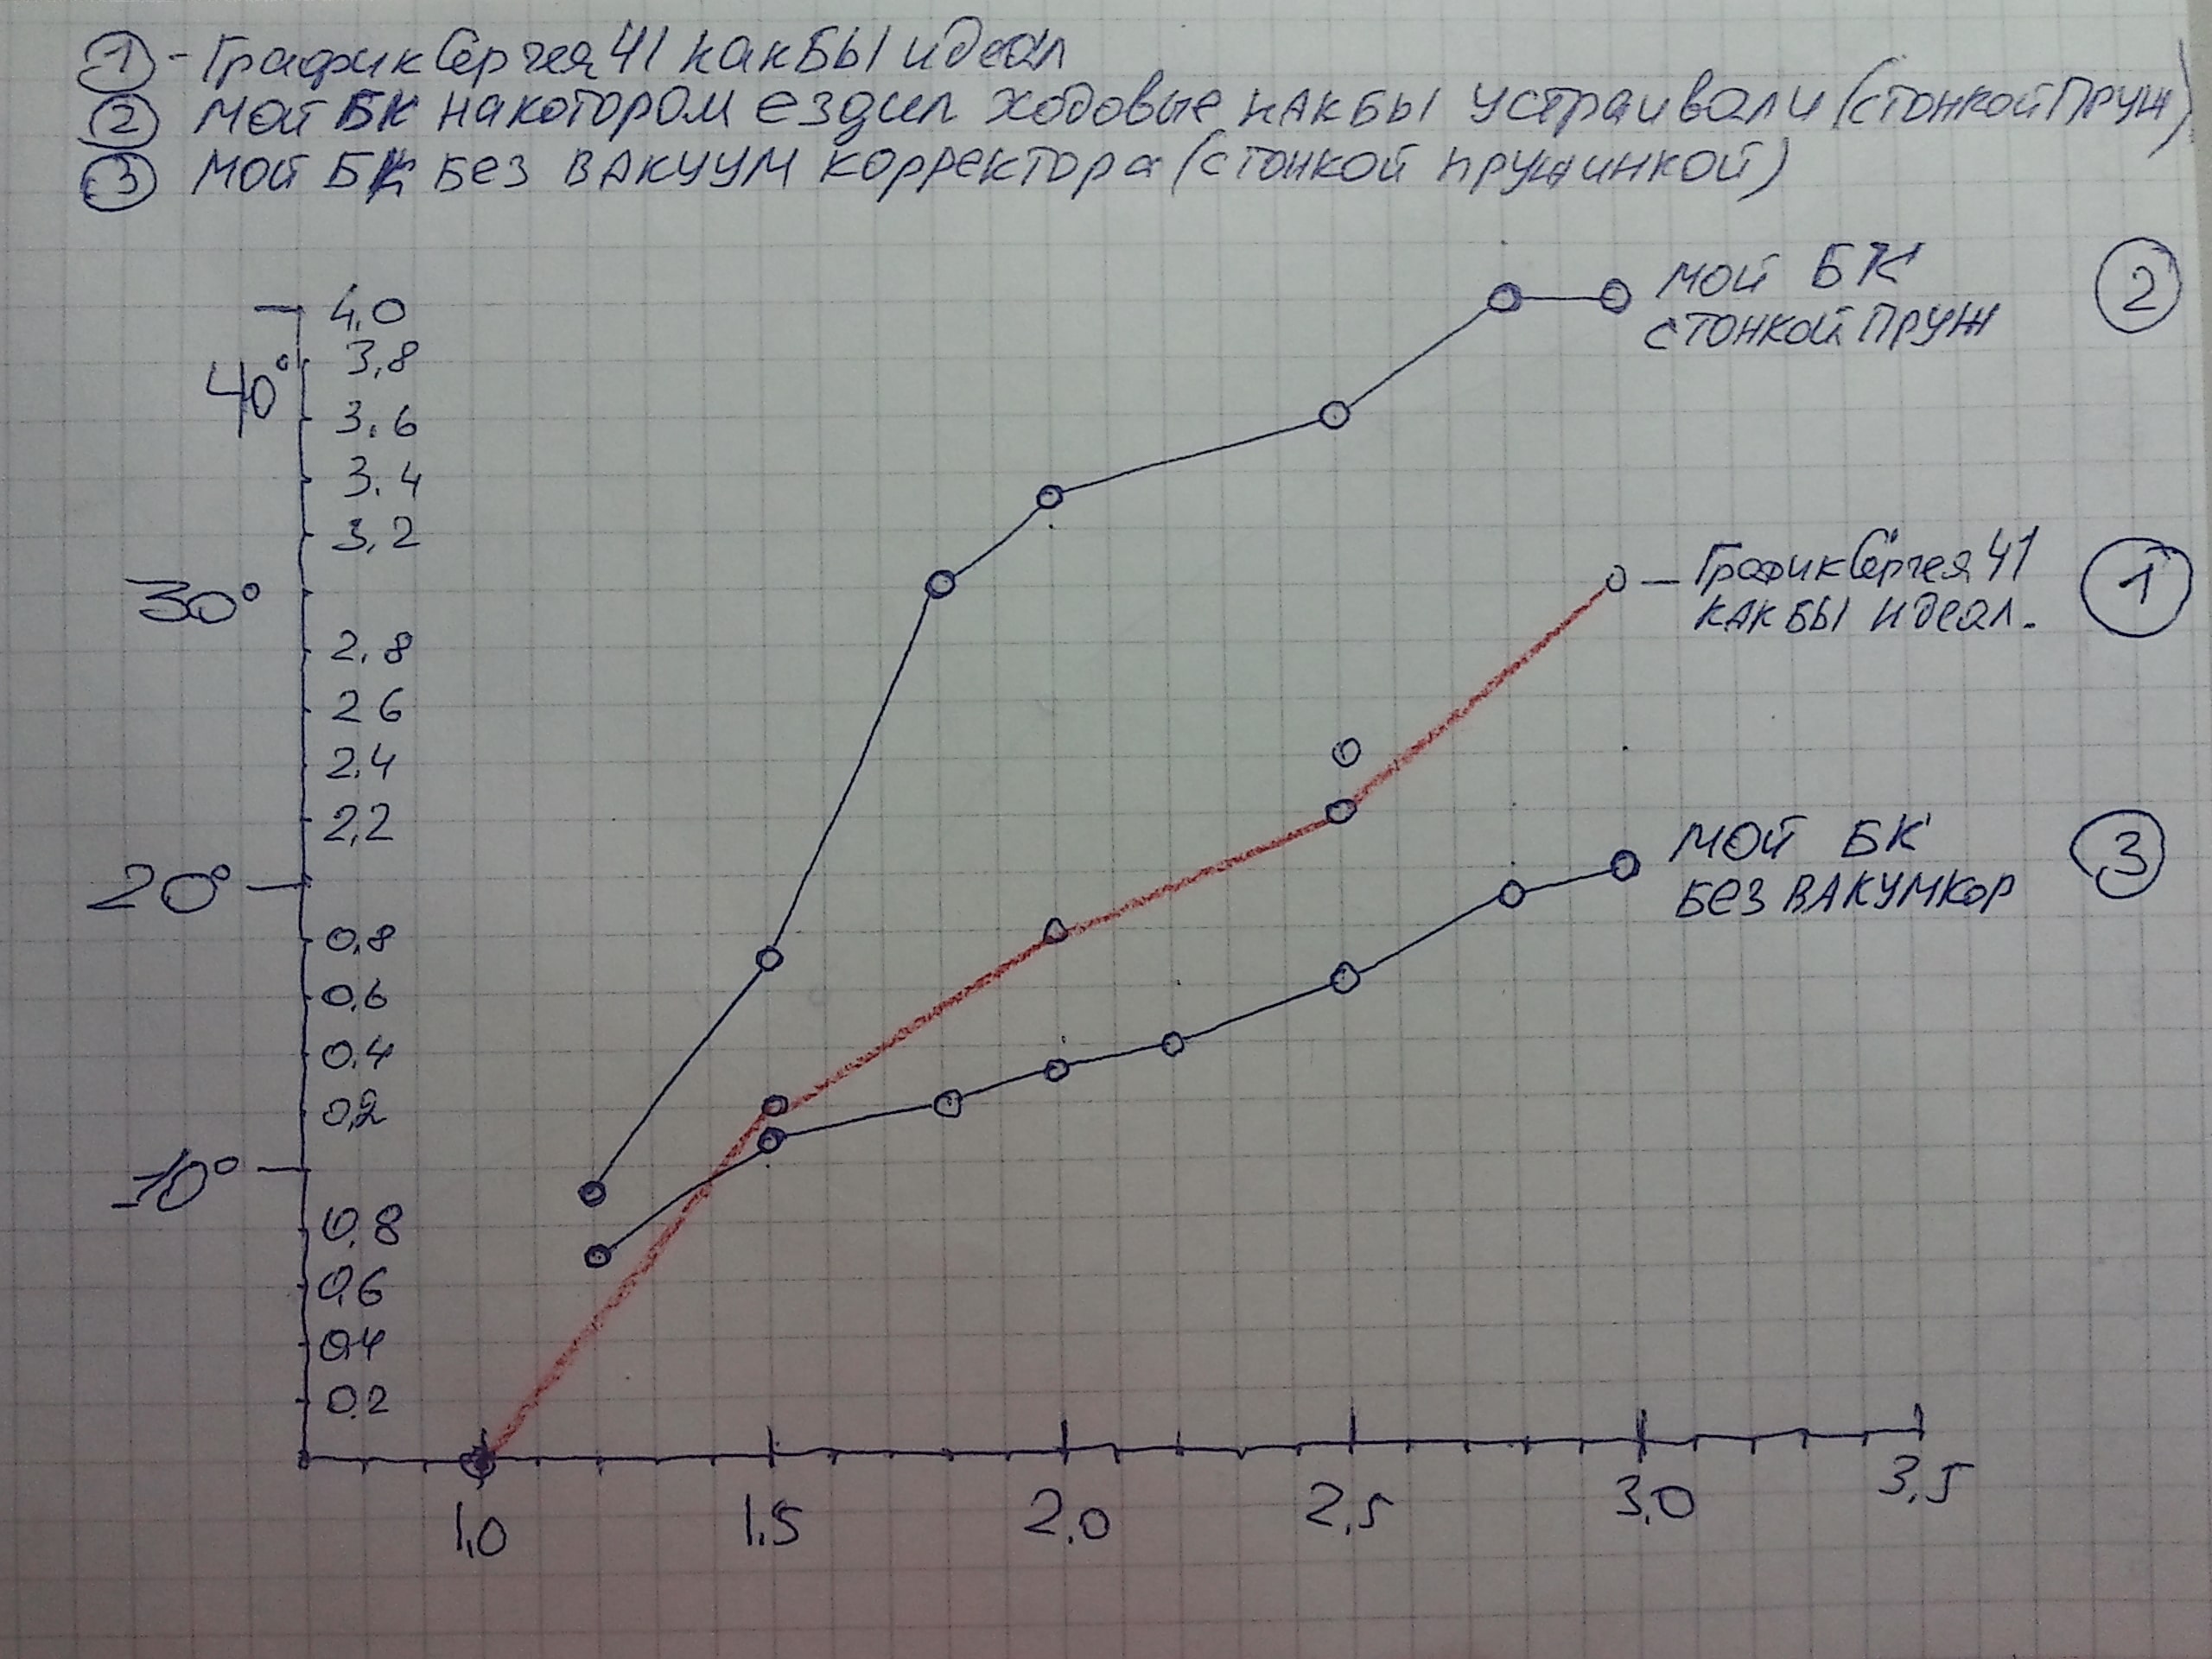 1 - График Сергея 41 как бы идеал
2 Мой БК на котором ездил ходовые как бы устраивали (с тонкой пруж)
3 Мой БК без вакуум корректора (с тонкой пружинкой)
Мой БК
с тонкой пруж
2
4,0
3,8
40°
3.6
3.4
3,2
График Сергея 41
как бы идеал.
1
30°
2,8
2 6
2,4
2,2
Мой БК
без вакумкор
3
20°
0,8
0,6
0,4
0,2
10°
0,8
0,6
0,4
0.2
1,0 1.5 2.0 2,5 3,0 3,5